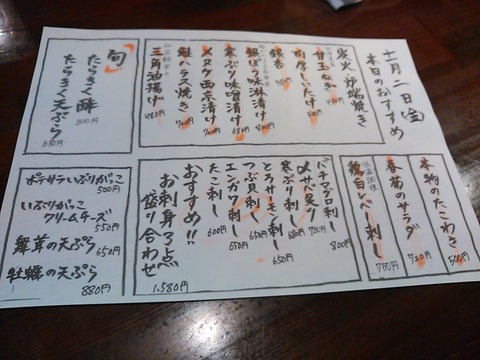 十一月二日(金)
本日のおすすめ
炭火・炉端焼き
甘玉ねぎ
肉厚しいたけ 500円
銀杏
銀ぽう味淋漬け 800円
寒ぶり味噌漬け 650円
メヌケ西京漬け 700円
鮭ハラス焼き 700円
三角油揚げ 480円
旬
たらきく酢 800円
たらきく天ぷら 850円
本物のたこわさ 500円
春菊のサラダ 720円
低温調理
鶏白レバー刺し 780円
バチマグロ刺し 800円
〆サバ炙り 780円
寒ぶり刺し 680円
とろサーモン刺し 650円
つぶ貝刺し 650円
エンガワ刺し 650円
たこ刺し 600円
おすすめ!!
お刺身7点
盛り合わせ
1.580円
ポテサラいぶりがっこ
500円
いぶりがっこ
クリームチーズ
550円
舞茸の天ぷら
650円
牡蠣の天ぷら
880円